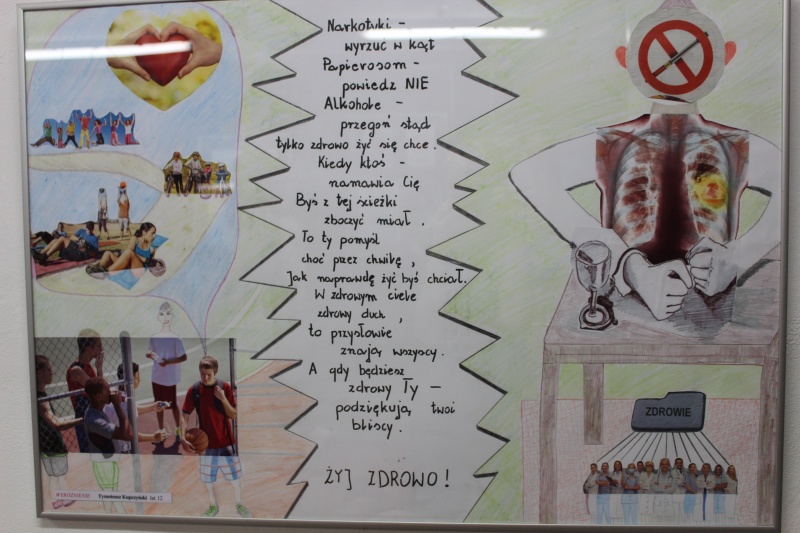 Narkotyki -
wyrzuć w kąt
Papierosom -
powiedz NIE
Alkohole -
przegoń stąd
tylko zdrowo żyć się chce.
Kiedy ktoś -
namawia Cię
Byś z tej ścieżki
zboczyć miał.
To ty pomyśl
choć przez chwilkę,
Jak naprawdę żyć byś chciał.
W zdrowym ciele
zdrowy duch,
to przysłowie
znają wszyscy.
A gdy będziesz
zdrowy Ty -
podziękują twoi
bliscy.
ŻYJ ZDROWO!
ZDROWIE
WYRÓŻNIENIE Tymoteusz Kupczyński lat 12